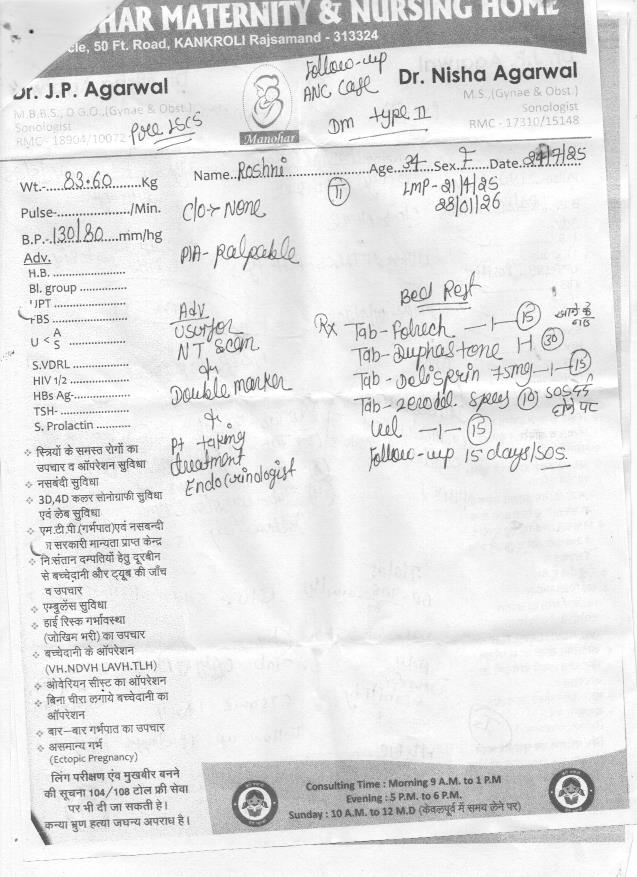 HAR MATERNITY & NURSING HOME
cle, 50 Ft. Road, KANKROLI Rajsamand - 313324
Dr. J.P. Agarwal
M.B.B.S., D.G.O.,(Gynae & Obst.)
Sonologist
RMC - 18904/10072
Pre LSCS
Manohar
Follow-up
ANC Case
DM type II
Dr. Nisha Agarwal
M.S.,(Gynae & Obst.)
Sonologist
RMC - 17310/15148
Wt.- 83.60 Kg
Name Roshni Age 34 Sex F Date 24/7/25
II
LMP - 21/4/25
28/01/26
Pulse- /Min.
B.P.- 130/80 mm/hg
C/O → None
P/A - Palpable
Adv.
H.B.
Bl. group
UPT
FBS
U < A S
S.VDRL
HIV 1/2
HBs Ag-
TSH-
S. Prolactin
Adv
USG for
NT scan
Double marker
Pt taking
treatment
Endocrinologist
Bed Rest
Rx Tab- Folrech -1- 15
Tab- Duphastone 1-1 30
Tab- Delisprin 75mg -1- 15
Tab- Zerodol Spas 10 SOS दर्द होने पर
-1- 15
Follow-up 15 days/SOS.
स्त्रियों के समस्त रोगों का
उपचार व ऑपरेशन सुविधा
नसबंदी सुविधा
3D,4D कलर सोनोग्राफी सुविधा
एवं लेब सुविधा
एम.टी.पी.(गर्भपात)एवं नसबन्दी
सरकारी मान्यता प्राप्त केन्द्र
निःसंतान दम्पतियों हेतु दूरबीन
से बच्चेदानी और ट्यूब की जाँच
व उपचार
एम्बुलेंस सुविधा
हाई रिस्क गर्भावस्था
(जोखिम भरी) का उपचार
बच्चेदानी के ऑपरेशन
(VH.NDVH LAVH.TLH)
ओवेरियन सीस्ट का ऑपरेशन
बिना चीरा लगाये बच्चेदानी का
ऑपरेशन
बार–बार गर्भपात का उपचार
असमान्य गर्भ
(Ectopic Pregnancy)
लिंग परीक्षण एंव मुखबीर बनने
की सूचना 104/108 टोल फ्री सेवा
पर भी दी जा सकती है।
कन्या भ्रुण हत्या जघन्य अपराध है।
Consulting Time : Morning 9 A.M. to 1 P.M
Evening : 5 P.M. to 6 P.M.
Sunday : 10 A.M. to 12 M.D (केवलपूर्व में समय लेने पर)